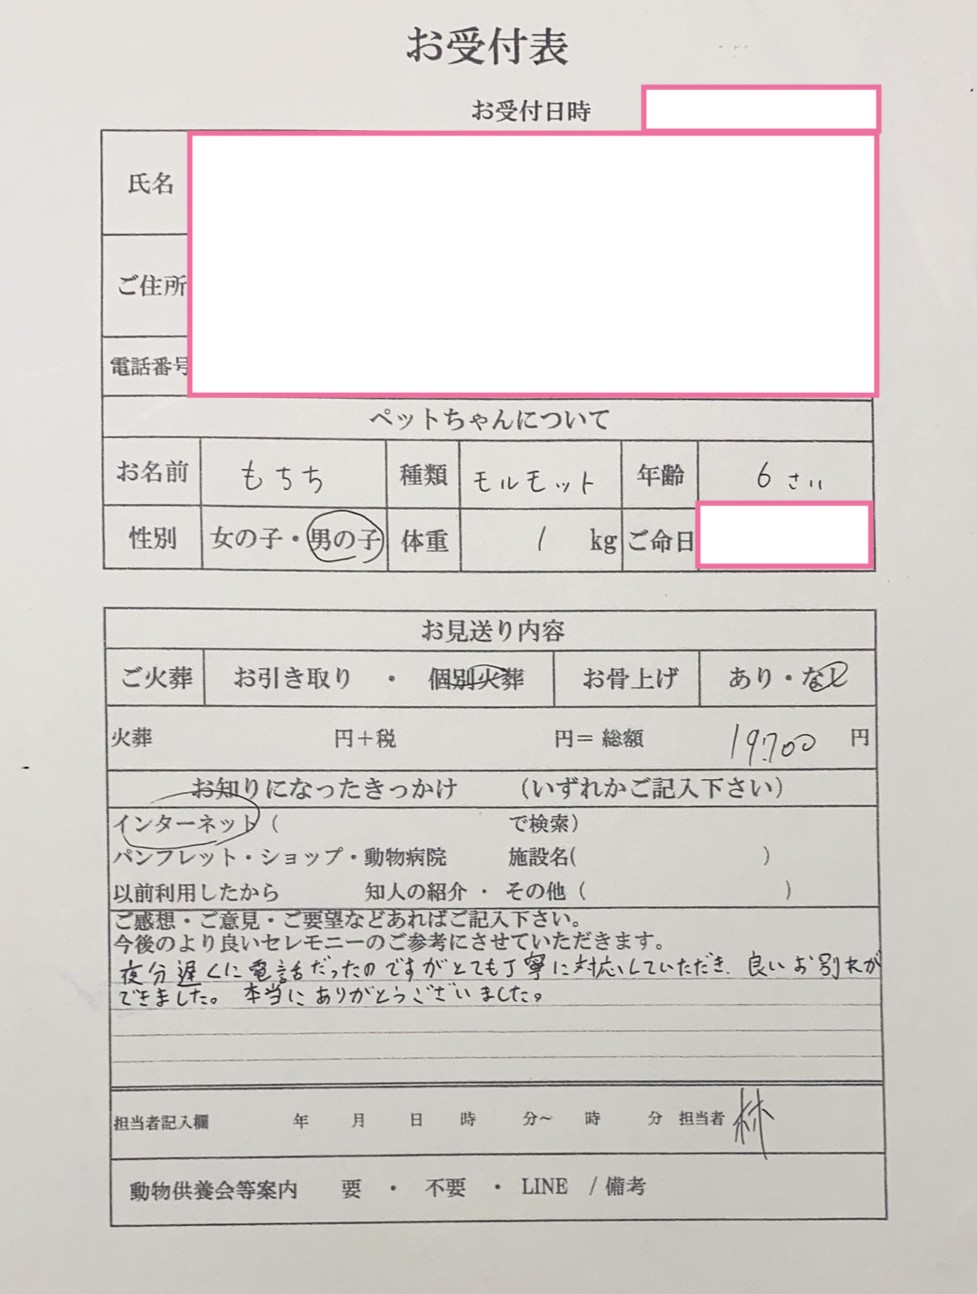 お受付表
お受付日時
氏名
ご住所
電話番号
ペットちゃんについて
お名前 もちち 種類 モルモット 年齢 6さい
性別 女の子・男の子 体重 1 kg ご命日
お見送り内容
ご火葬 お引き取り ・ 個別火葬 お骨上げ あり・なし
火葬 円＋税 円＝ 総額 19.700 円
お知りになったきっかけ （いずれかご記入下さい）
インターネット（ で検索）
パンフレット・ショップ・動物病院 施設名( )
以前利用したから 知人の紹介 ・ その他（ ）
ご感想・ご意見・ご要望などあればご記入下さい。
今後のより良いセレモニーのご参考にさせていただきます。
夜分遅くに電話だったのですがとても丁寧に対応していただき、良いお別れが
できました。本当にありがとうございました。
担当者記入欄 年 月 日 時 分～ 時 分 担当者 林
動物供養会等案内 要 ・ 不要 ・ LINE / 備考